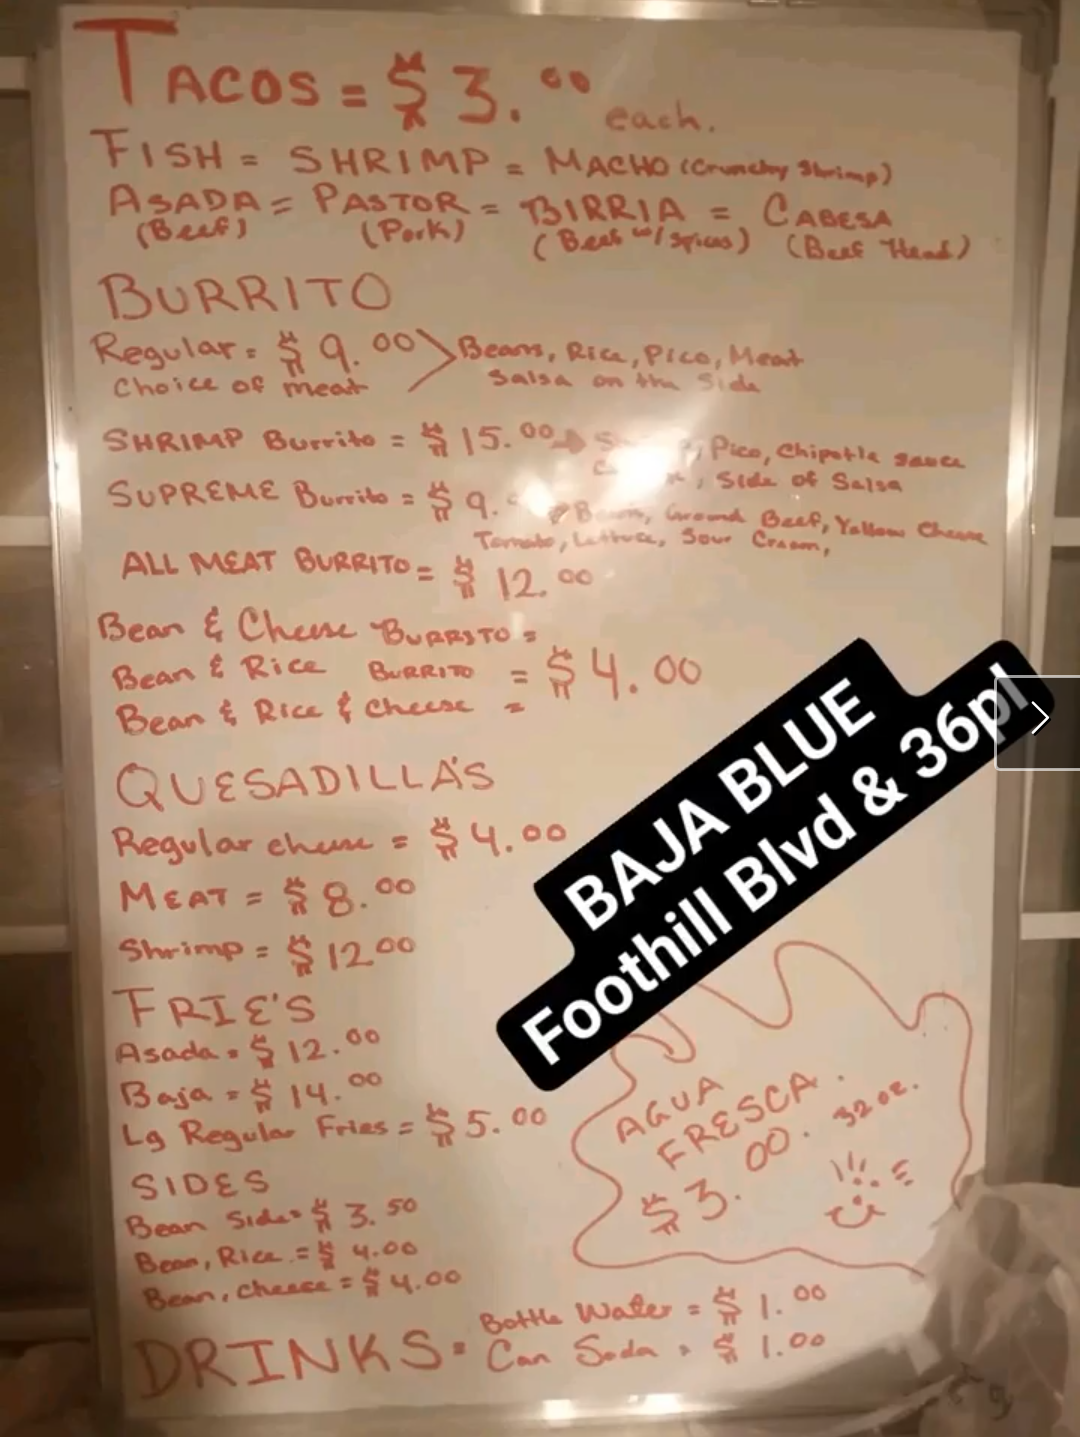 TACOS = $3.00 each.
FISH = SHRIMP = MACHO (Crunchy Shrimp)
ASADA = PASTOR = BIRRIA = CABESA
(Beef) (Pork) (Beef w/ spices) (Beef Head)
BURRITO
Regular = $9.00 > Beans, Rice, Pico, Meat
Choice of meat Salsa on the Side
SHRIMP Burrito = $15.00 Pico, Chipotle sauce
, Side of Salsa
SUPREME Burrito = $9. Ground Beef, Yellow Cheese
Tomato, Lettuce, Sour Cream,
ALL MEAT BURRITO = $12.00
Bean & Cheese BURRITO =
Bean & Rice BURRITO = $4.00
Bean & Rice & Cheese =
QUESADILLA'S
Regular cheese = $4.00
MEAT = $8.00
Shrimp = $12.00
FRIE'S
Asada = $12.00
Baja = $14.00
Lg Regular Fries = $5.00
SIDES
Bean Side = $3.50
Bean, Rice = $4.00
Bean, Cheese = $4.00
DRINKS = Bottle Water = $1.00
Can Soda = $1.00
BAJA BLUE
Foothill Blvd & 36pl
AGUA
FRESCA.
$3.00. 32oz.